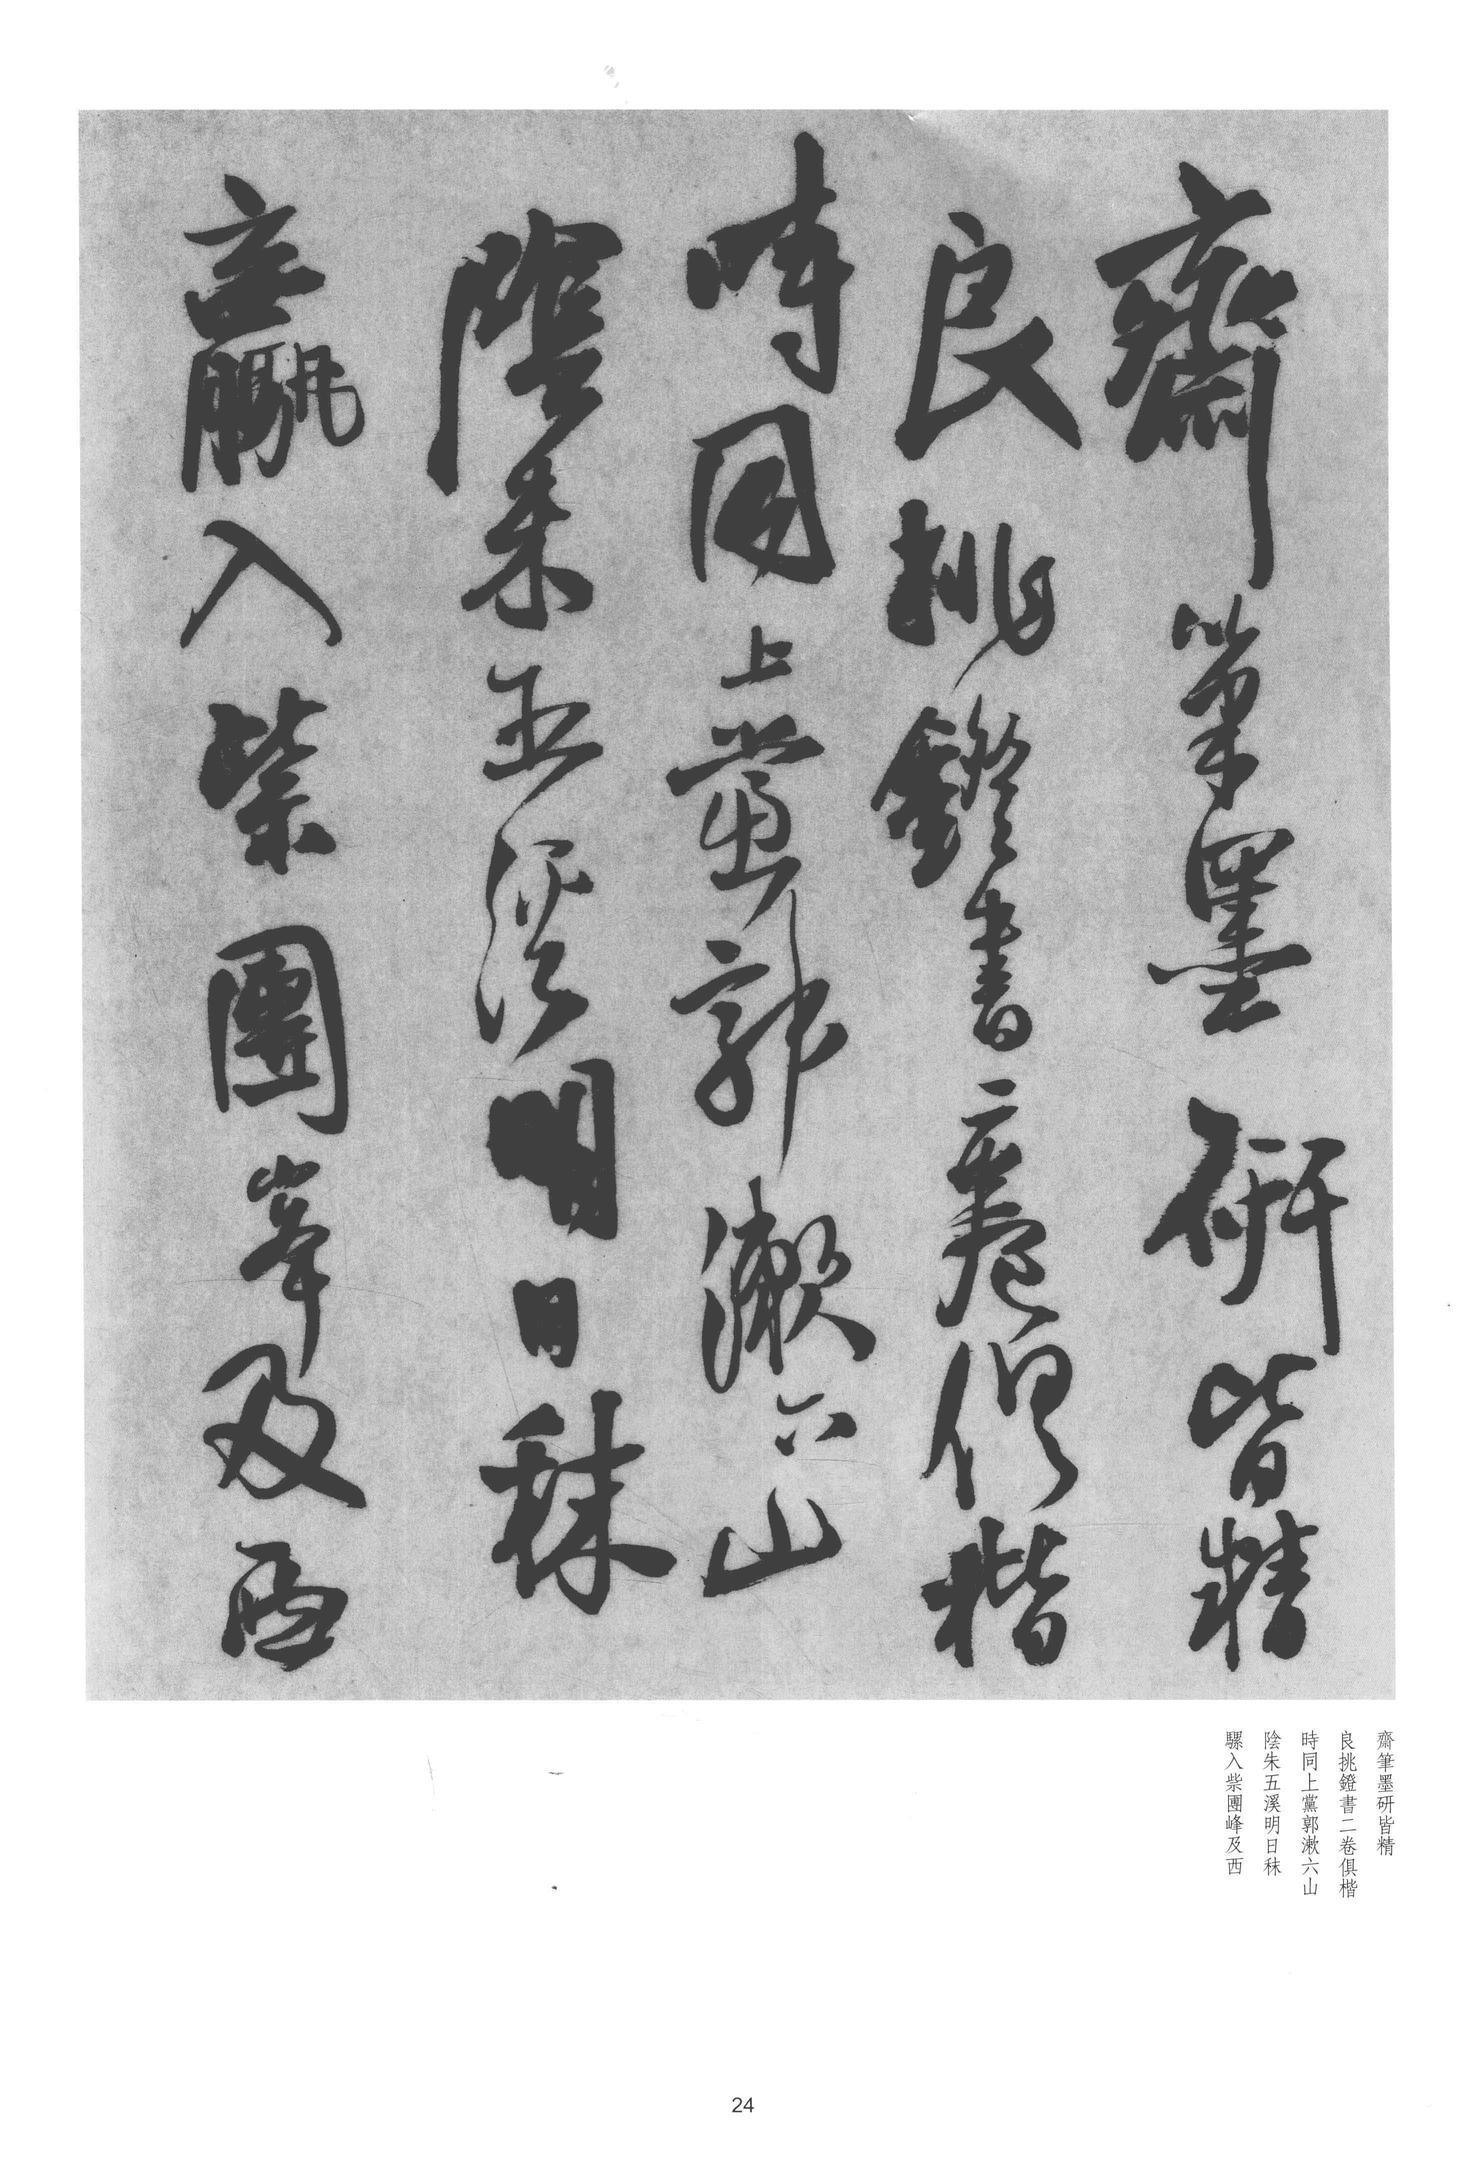 齋筆墨研皆精
良挑鐙書二卷俱楷
時同上黨郭漱六山
陰朱五溪明日秣
驘入紫團峯及西
齋筆墨研皆精
良挑鐙書二卷俱楷
時同上黨郭漱六山
陰朱五溪明日秣
騾入紫團峰及西
24